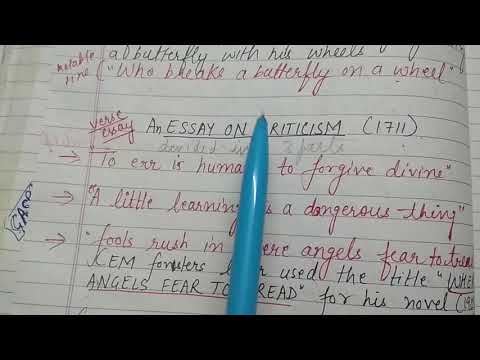 a butterfly with his wheels
notable line ("Who breaks a butterfly on a wheel"
verse essay An ESSAY ON CRITICISM (1711)
divided in 3 parts
→ "To err is human, to forgive divine"
→ "A little learning is a dangerous thing"
→ "fools rush in where angels fear to tread
EM forsters later used the title "WHERE
ANGELS FEAR TO TREAD" for his novel